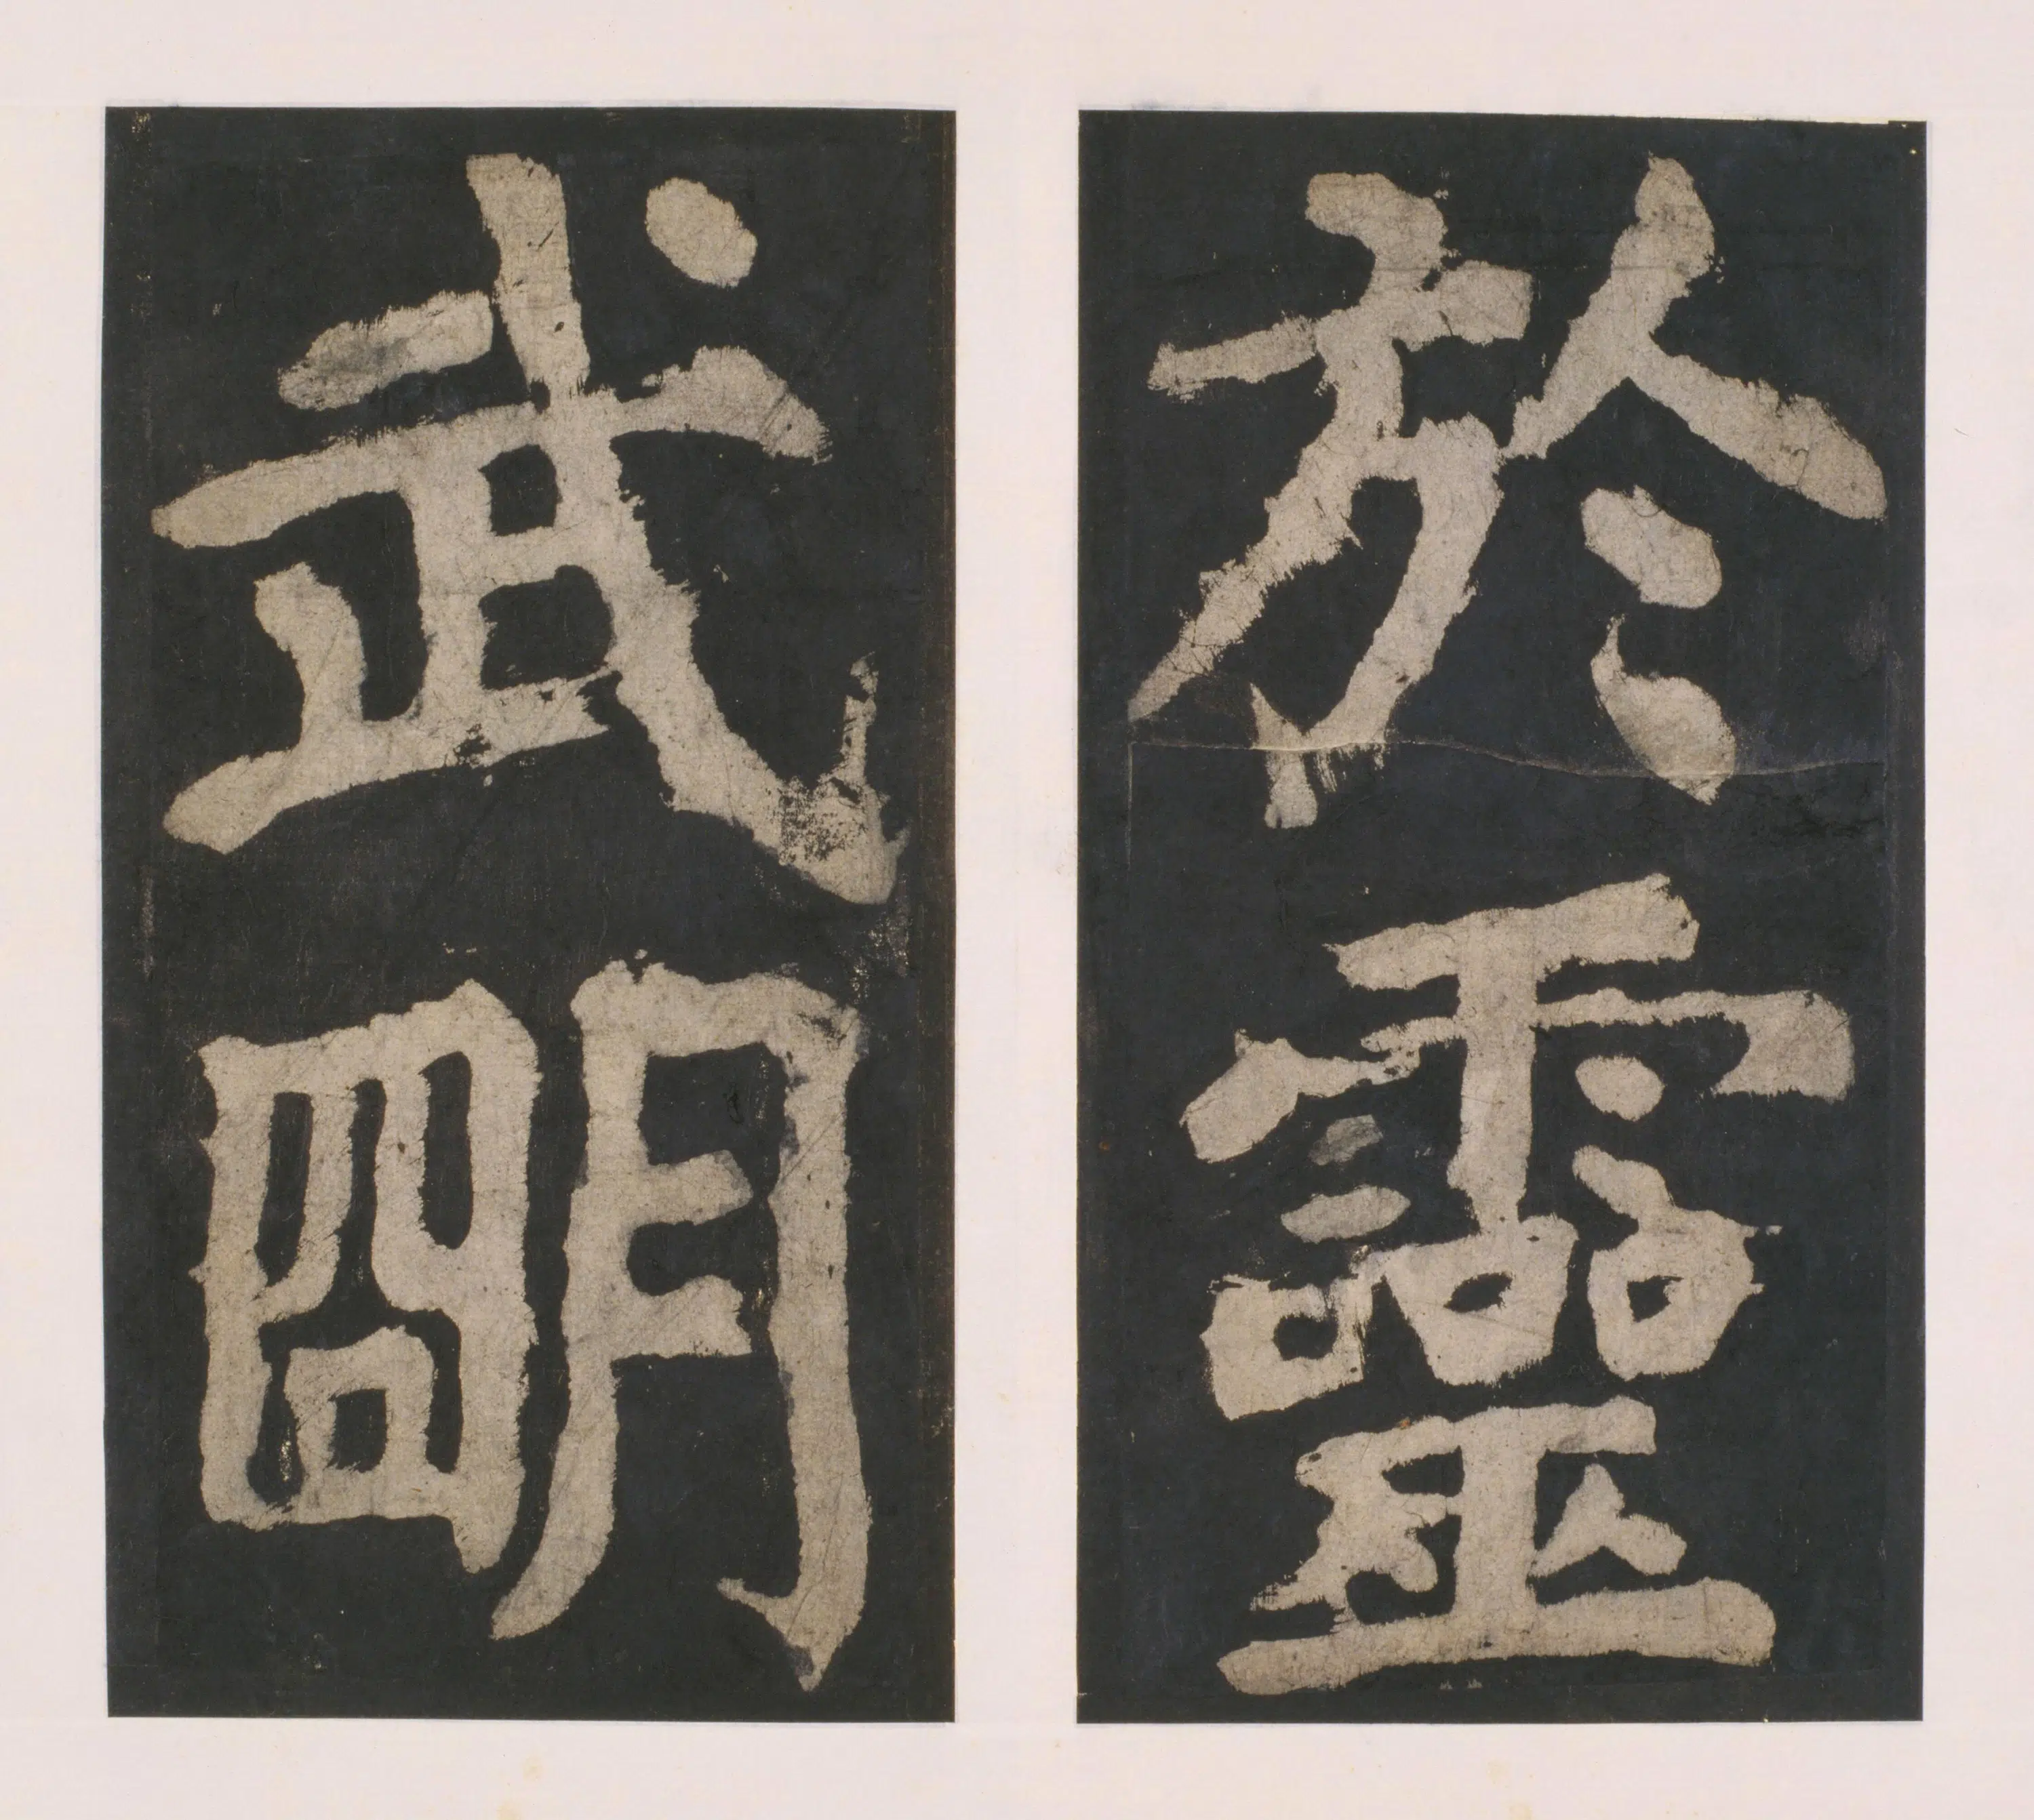 於靈
武明